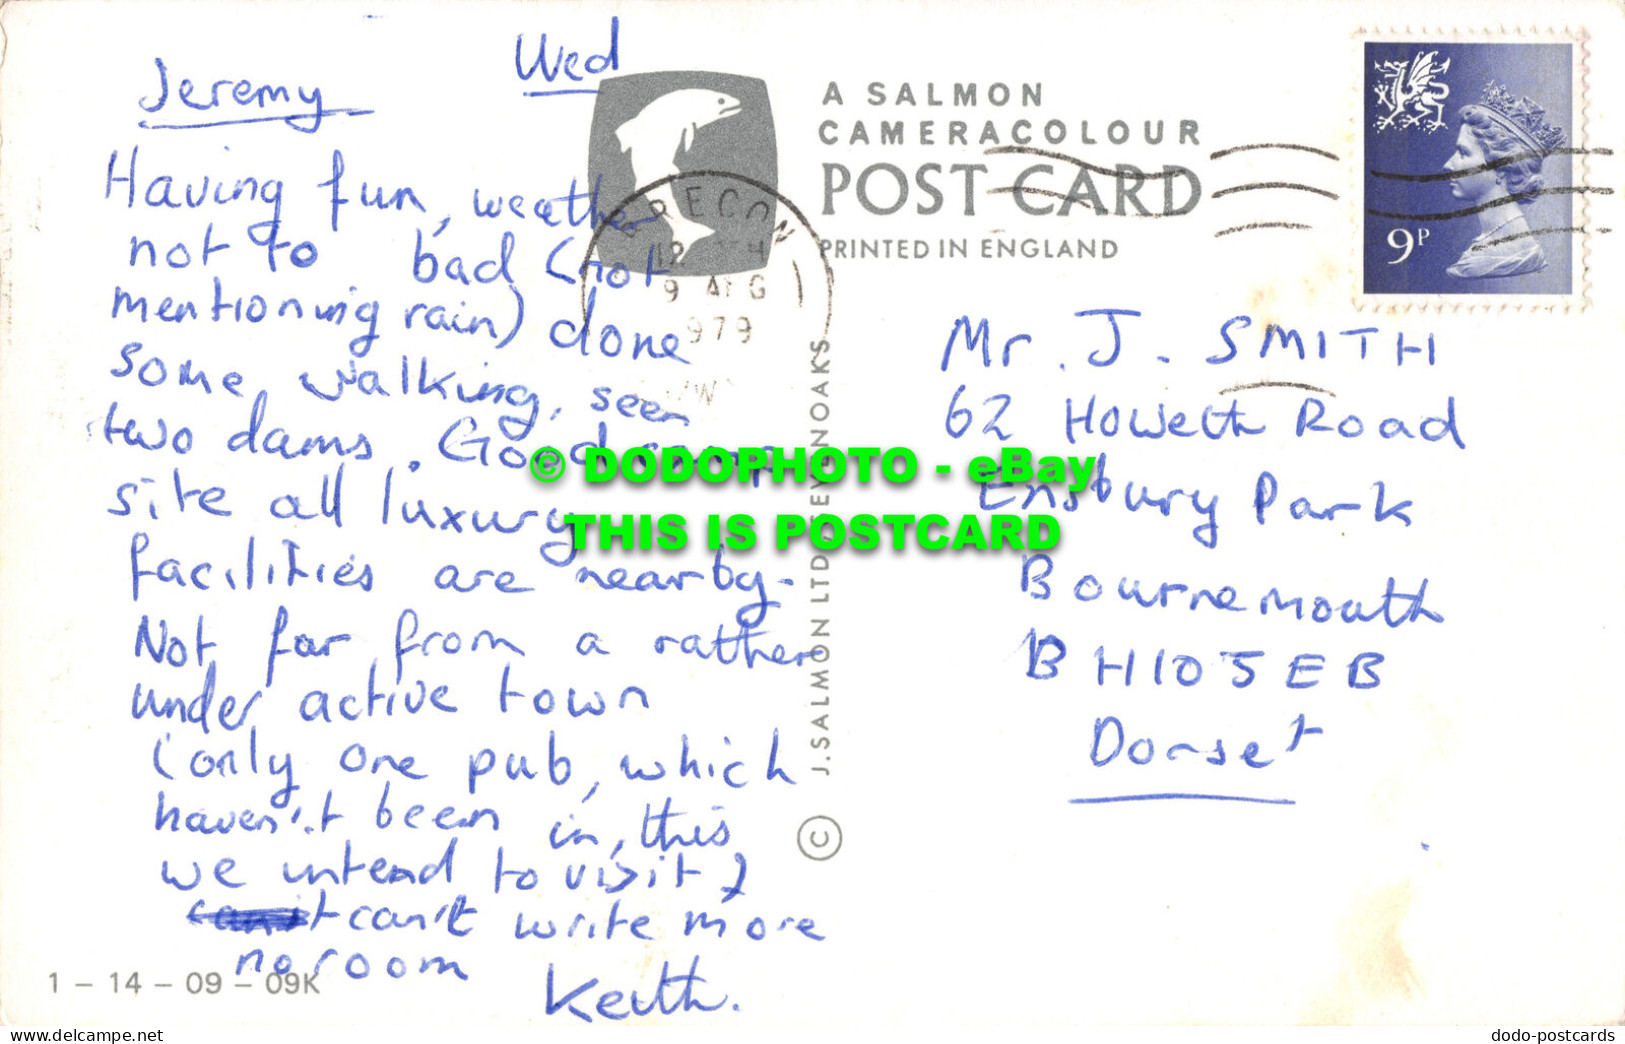 Wed
Jeremy
Having fun, weather
not to bad (not
mentioning rain) done
some walking, seen
two dams. Good camp
site all luxury
facilities are nearby.
Not far from a rather
under active town
(only one pub, which
haven't been in, this
we intend to visit)
can't write more
no room
Keith.
1 – 14 – 09 – 09K
A SALMON
CAMERACOLOUR
POST CARD
PRINTED IN ENGLAND
BRECON
9 AUG
1979
9P
Mr. J. SMITH
62 Howeth Road
Ensbury Park
Bournemouth
BH10 5EB
Dorset
© J. SALMON LTD SEVENOAKS
© DODOPHOTO - eBay
THIS IS POSTCARD
www.delcampe.net
dodo-postcards